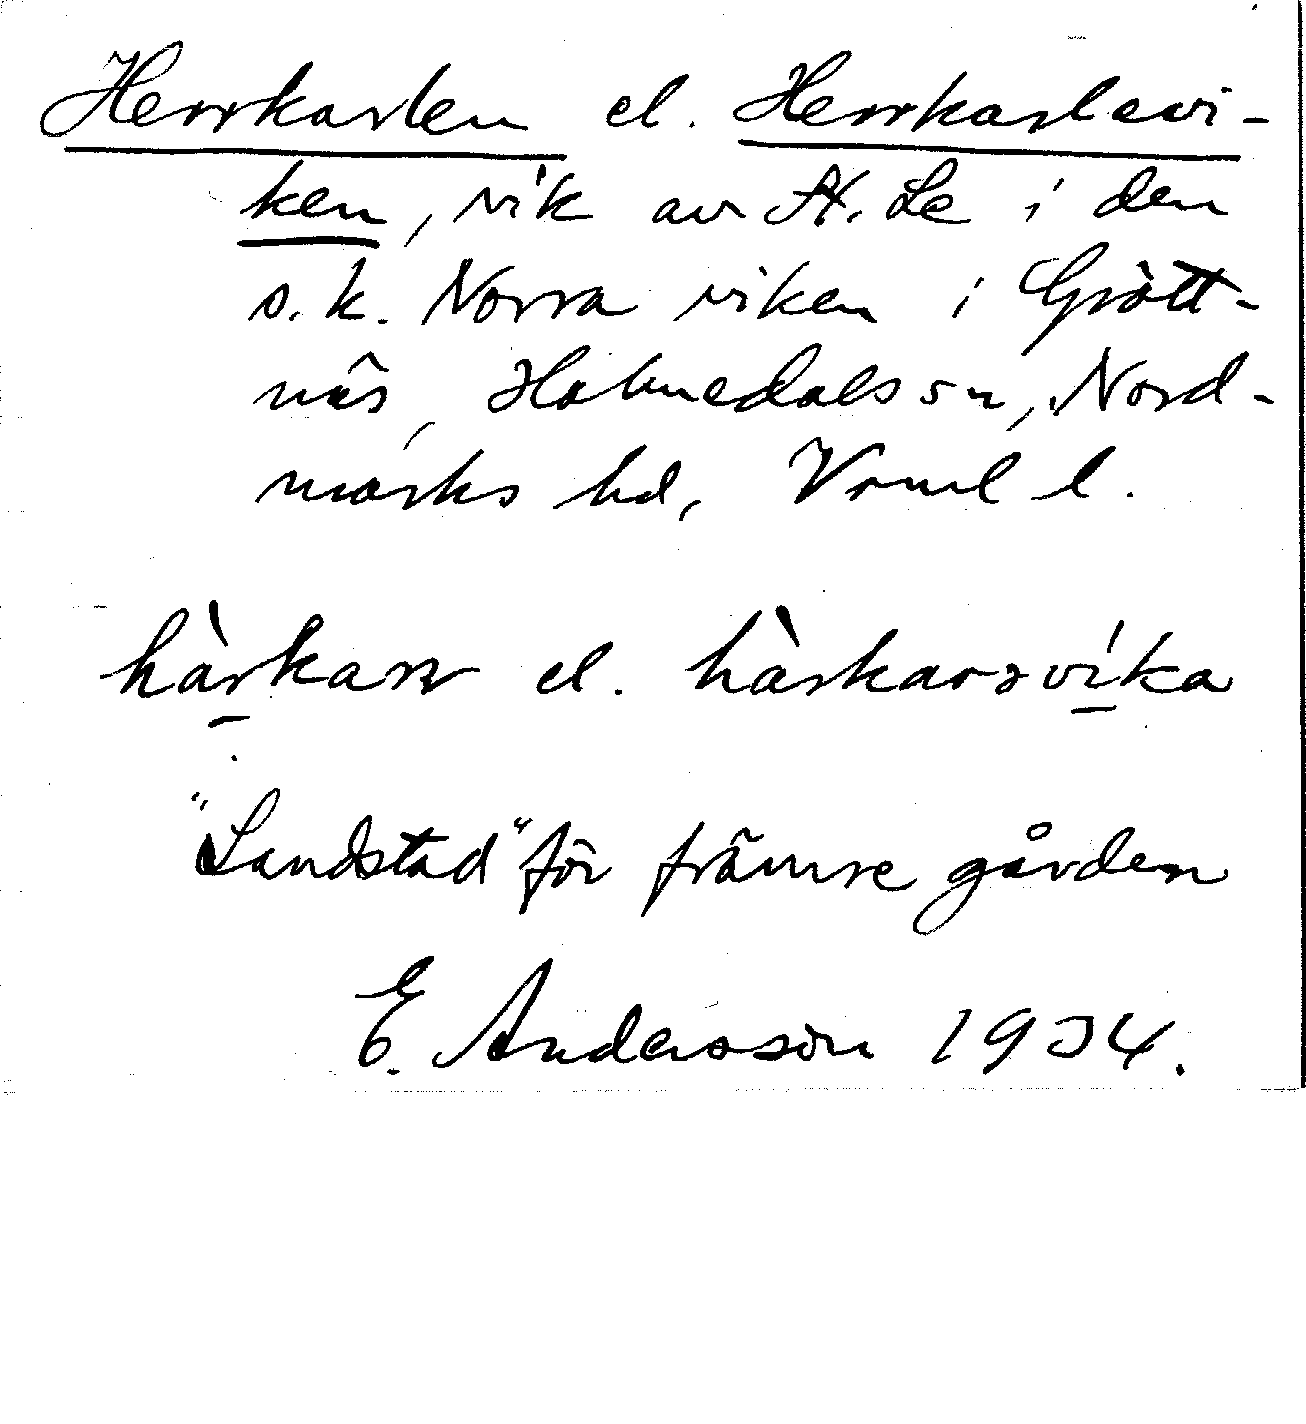 Herrkarlen el. Herrkarlevi-
ken, vik av St. Le i den
s.k. Norra viken i Grött-
näs, Holmedals sn, Nord-
marks hd, Värml l.
hàrkarn el. hàrkarsvíka
"Landstad" för främre gården
E. Andersson 1934.